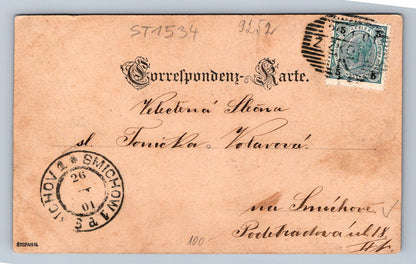 ST1534
Correspondenz-Karte.
Veletěná Slečna
sl. Tonička Votavová.
na Smíchově
Podebradova ul. 18
SMICHOW 1 * SMICHOV 1
26
01
100-
5 5
STEFAN N.